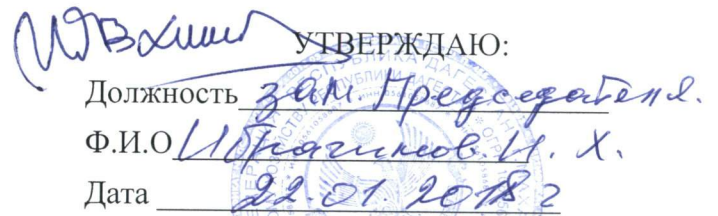 УТВЕРЖДАЮ:
Должность зам. Председателя.
Ф.И.О Ибрагимов. И. Х.
Дата 22.01.2018 г